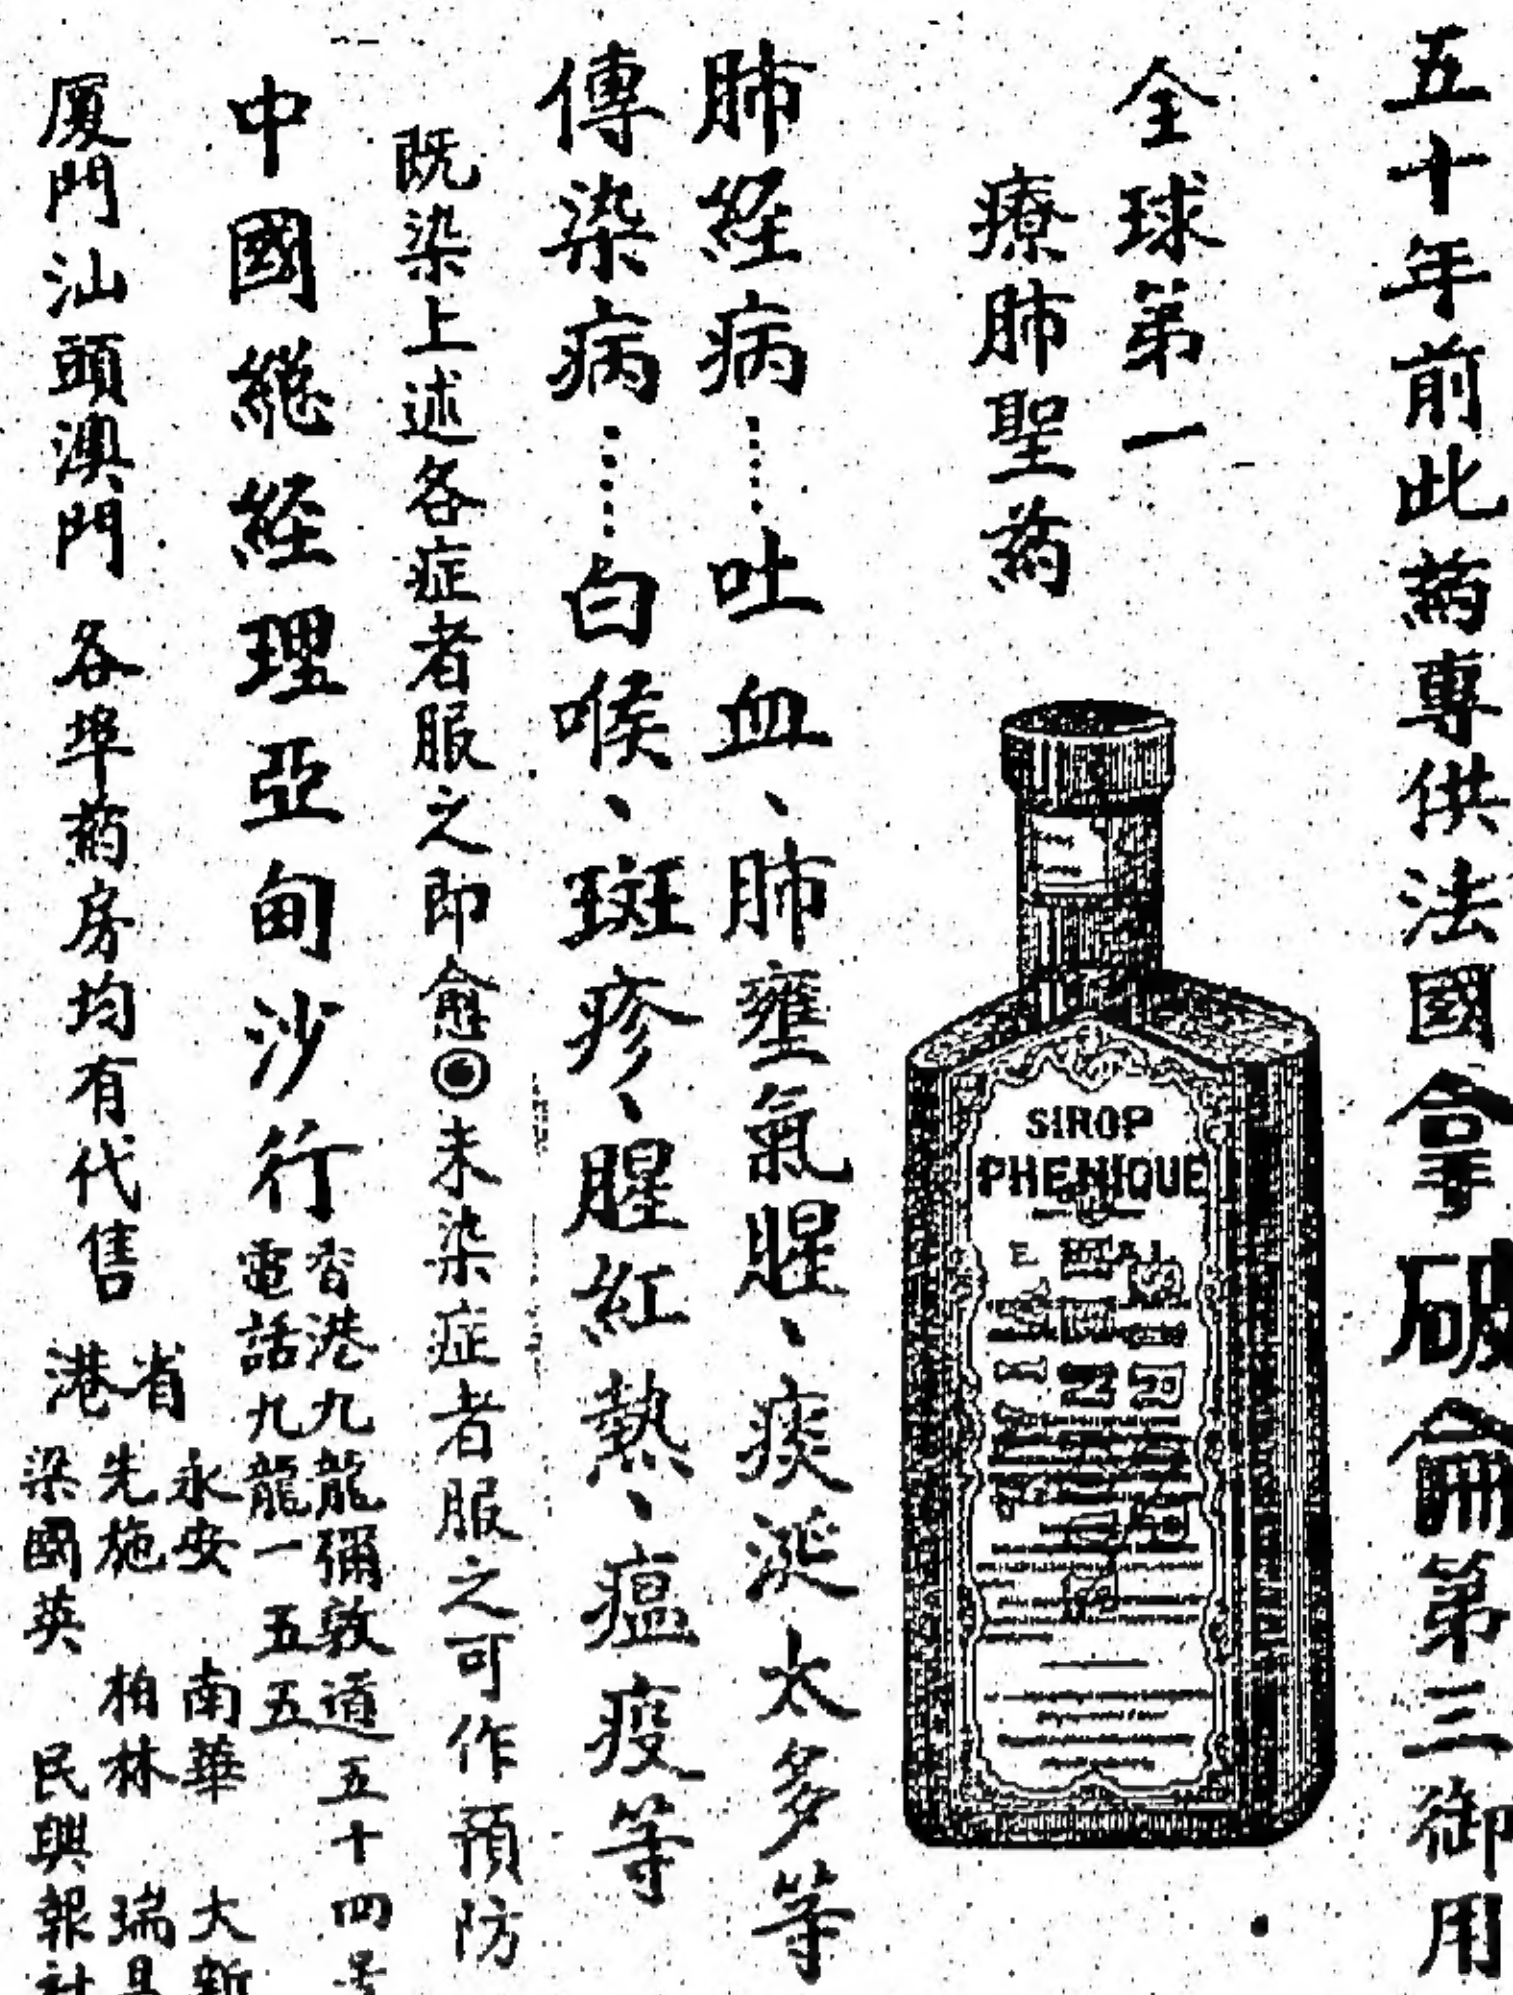 五十年前此葯專供法國拿破侖第三御用
全球第一
療肺聖葯
SIROP
PHENIQUE
肺経病……吐血、肺壅氣腥、痰涎太多等
傳染病……白喉、斑疹、腥紅熱、瘟疫等
既染上述各症者服之即愈◎未染症者服之可作預防
中國総経理亞甸沙行
香港九龍彌敦道五十四
電話九龍一五五五
厦門汕頭澳門 各埠葯房均有代售
省港
永安 南華 大新
先施 柏林 瑞昌
梁國英 民興報社